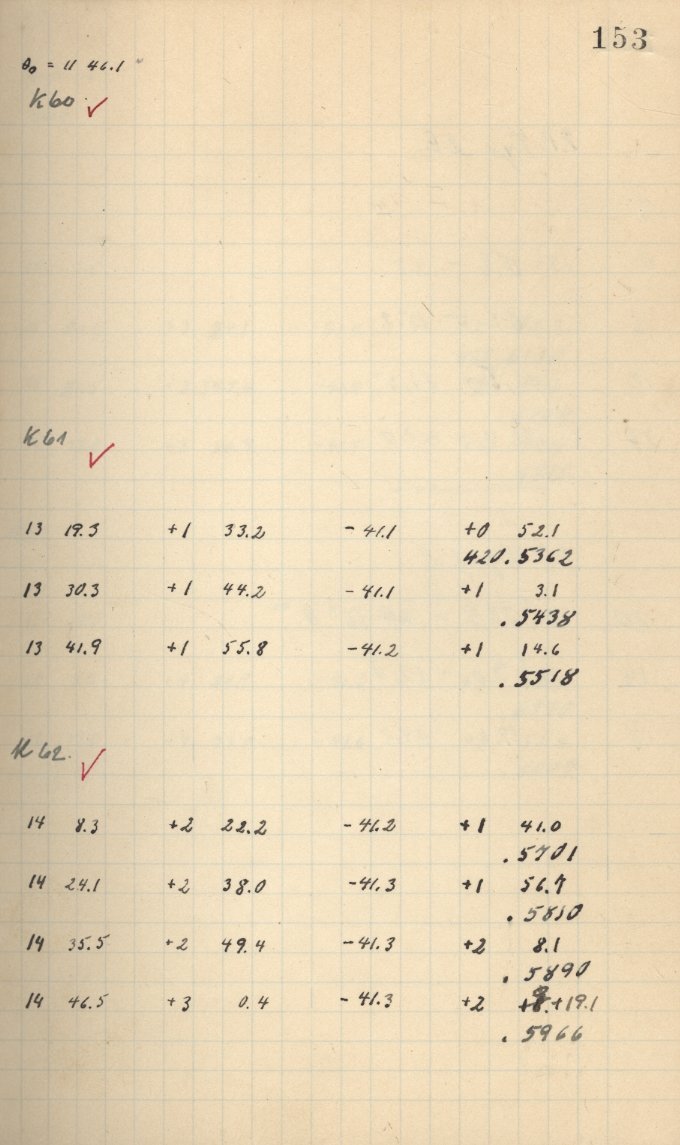 153
θ₀ = 11 46.1
K60 ✓
K61 ✓
13 19.3 +1 33.2 - 41.1 +0 52.1
420.5362
13 30.3 +1 44.2 - 41.1 +1 3.1
.5438
13 41.9 +1 55.8 - 41.2 +1 14.6
.5518
K62. ✓
14 8.3 +2 22.2 - 41.2 +1 41.0
.5701
14 24.1 +2 38.0 - 41.3 +1 56.7
.5810
14 35.5 +2 49.4 - 41.3 +2 8.1
.5890
14 46.5 +3 0.4 - 41.3 +2 +19.1
.5966